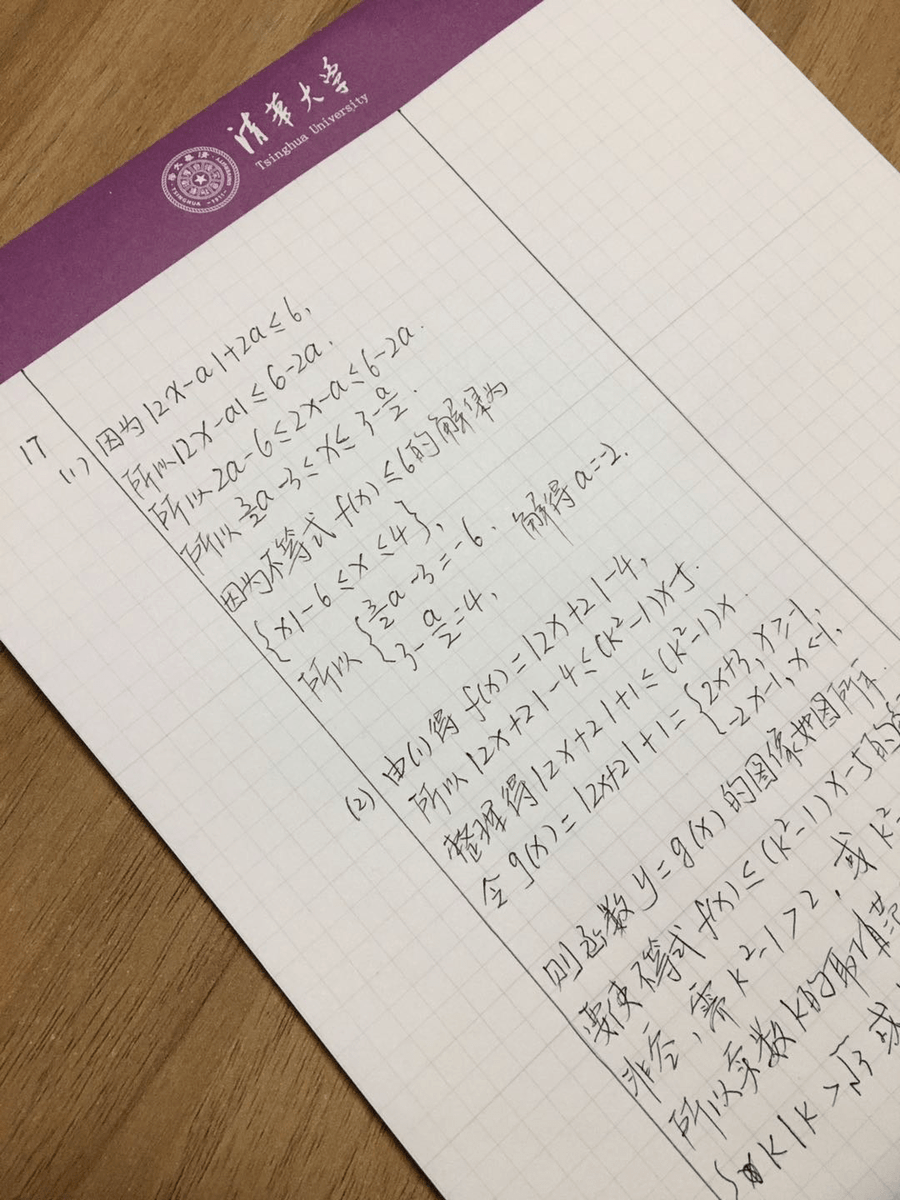 清华大学
Tsinghua University
17
(1) 因为|2x-a|+2a≤6,
所以|2x-a|≤6-2a.
所以 2a-6≤2x-a≤6-2a.
所以 3/2a-3≤x≤3-a/2.
因为不等式 f(x)≤6的解集为
{x|-6≤x≤4},
所以 { 3/2a-3=-6. 解得a=-2.
3-a/2=4,
(2) 由(1)得 f(x)=|2x+2|-4,
所以 |2x+2|-4≤(k²-1)x-5.
整理得|2x+2|+1≤(k²-1)x
令g(x)=|2x+2|+1={2x+3, x≥-1,
-2x-1, x<-1,
则函数y=g(x)的图像如图所示
要使不等式 f(x)≤(k²-1)x-5的
非空, 需 k²-1>2, 或 k²-
所以实数k的取值范
{k|k>√3 或